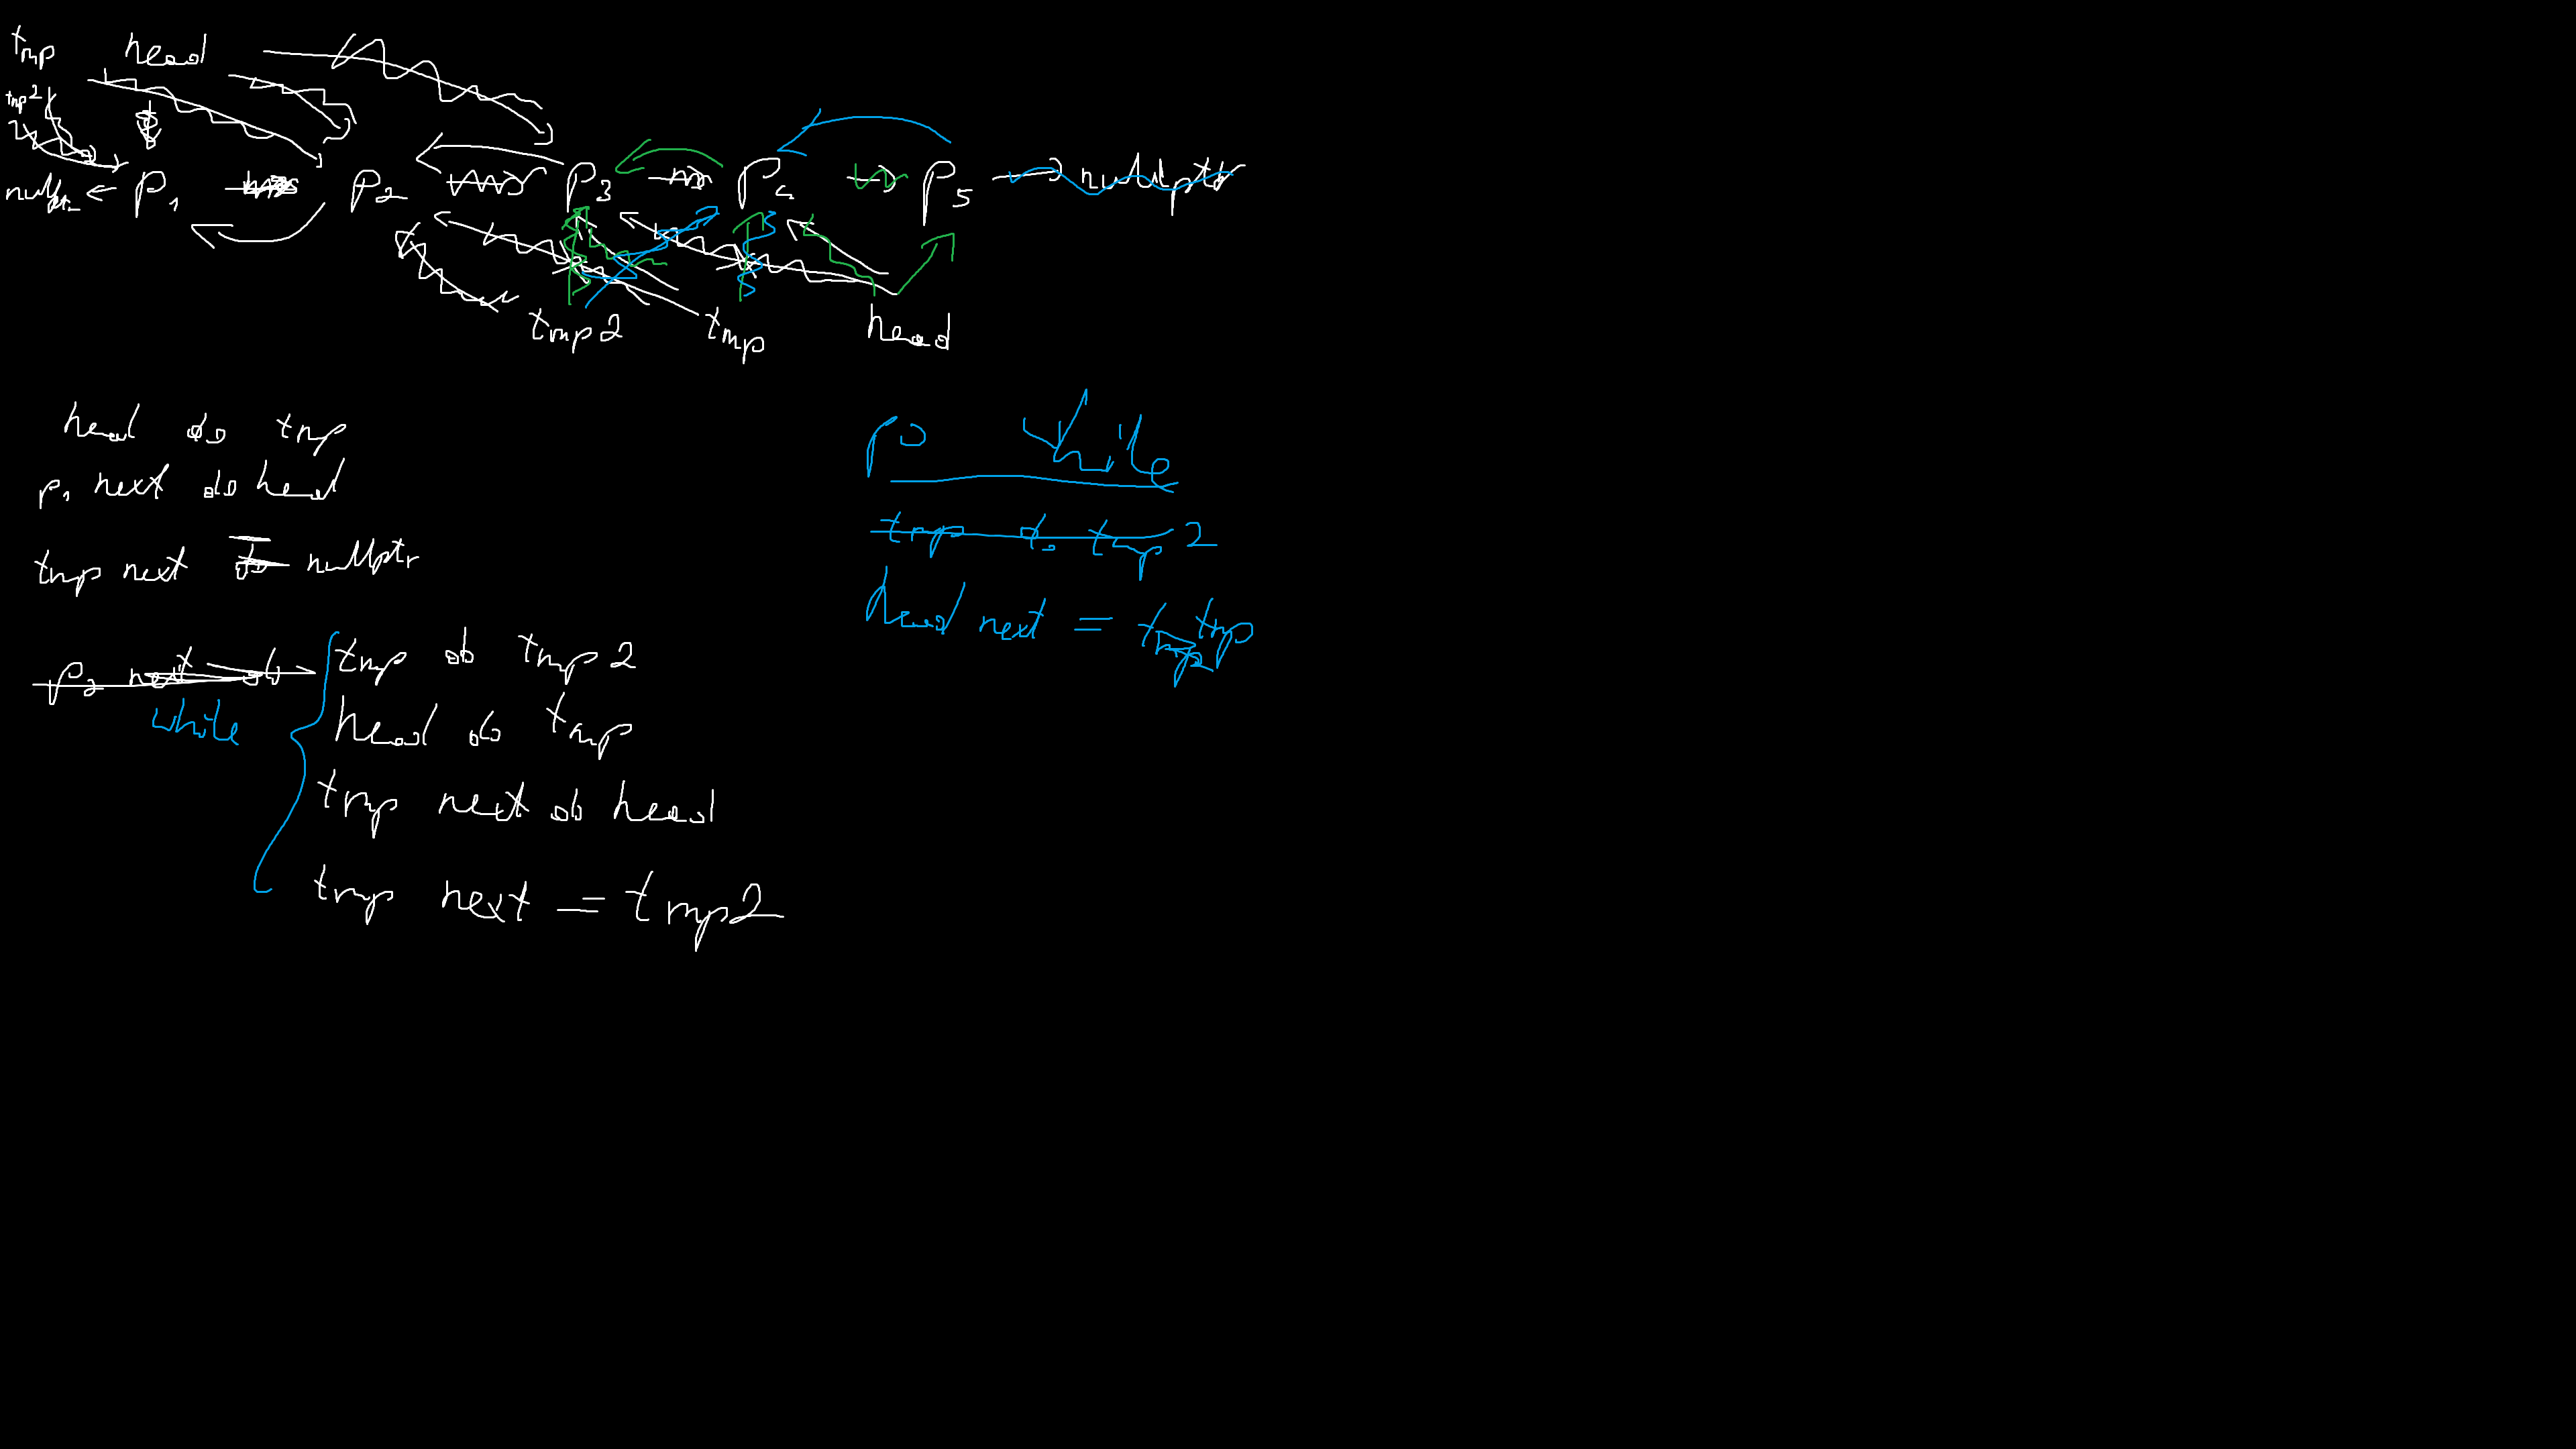 tmp head
tmp2
nullptr p1 p2 p3 p4 p5 nullptr
tmp2 tmp head
head do tmp
p1 next do head
tmp next = nullptr
p2 next do
while
tmp do tmp2
head do tmp
tmp next do head
tmp next = tmp2
po while
tmp do tmp2
head next = tmp2 tmp